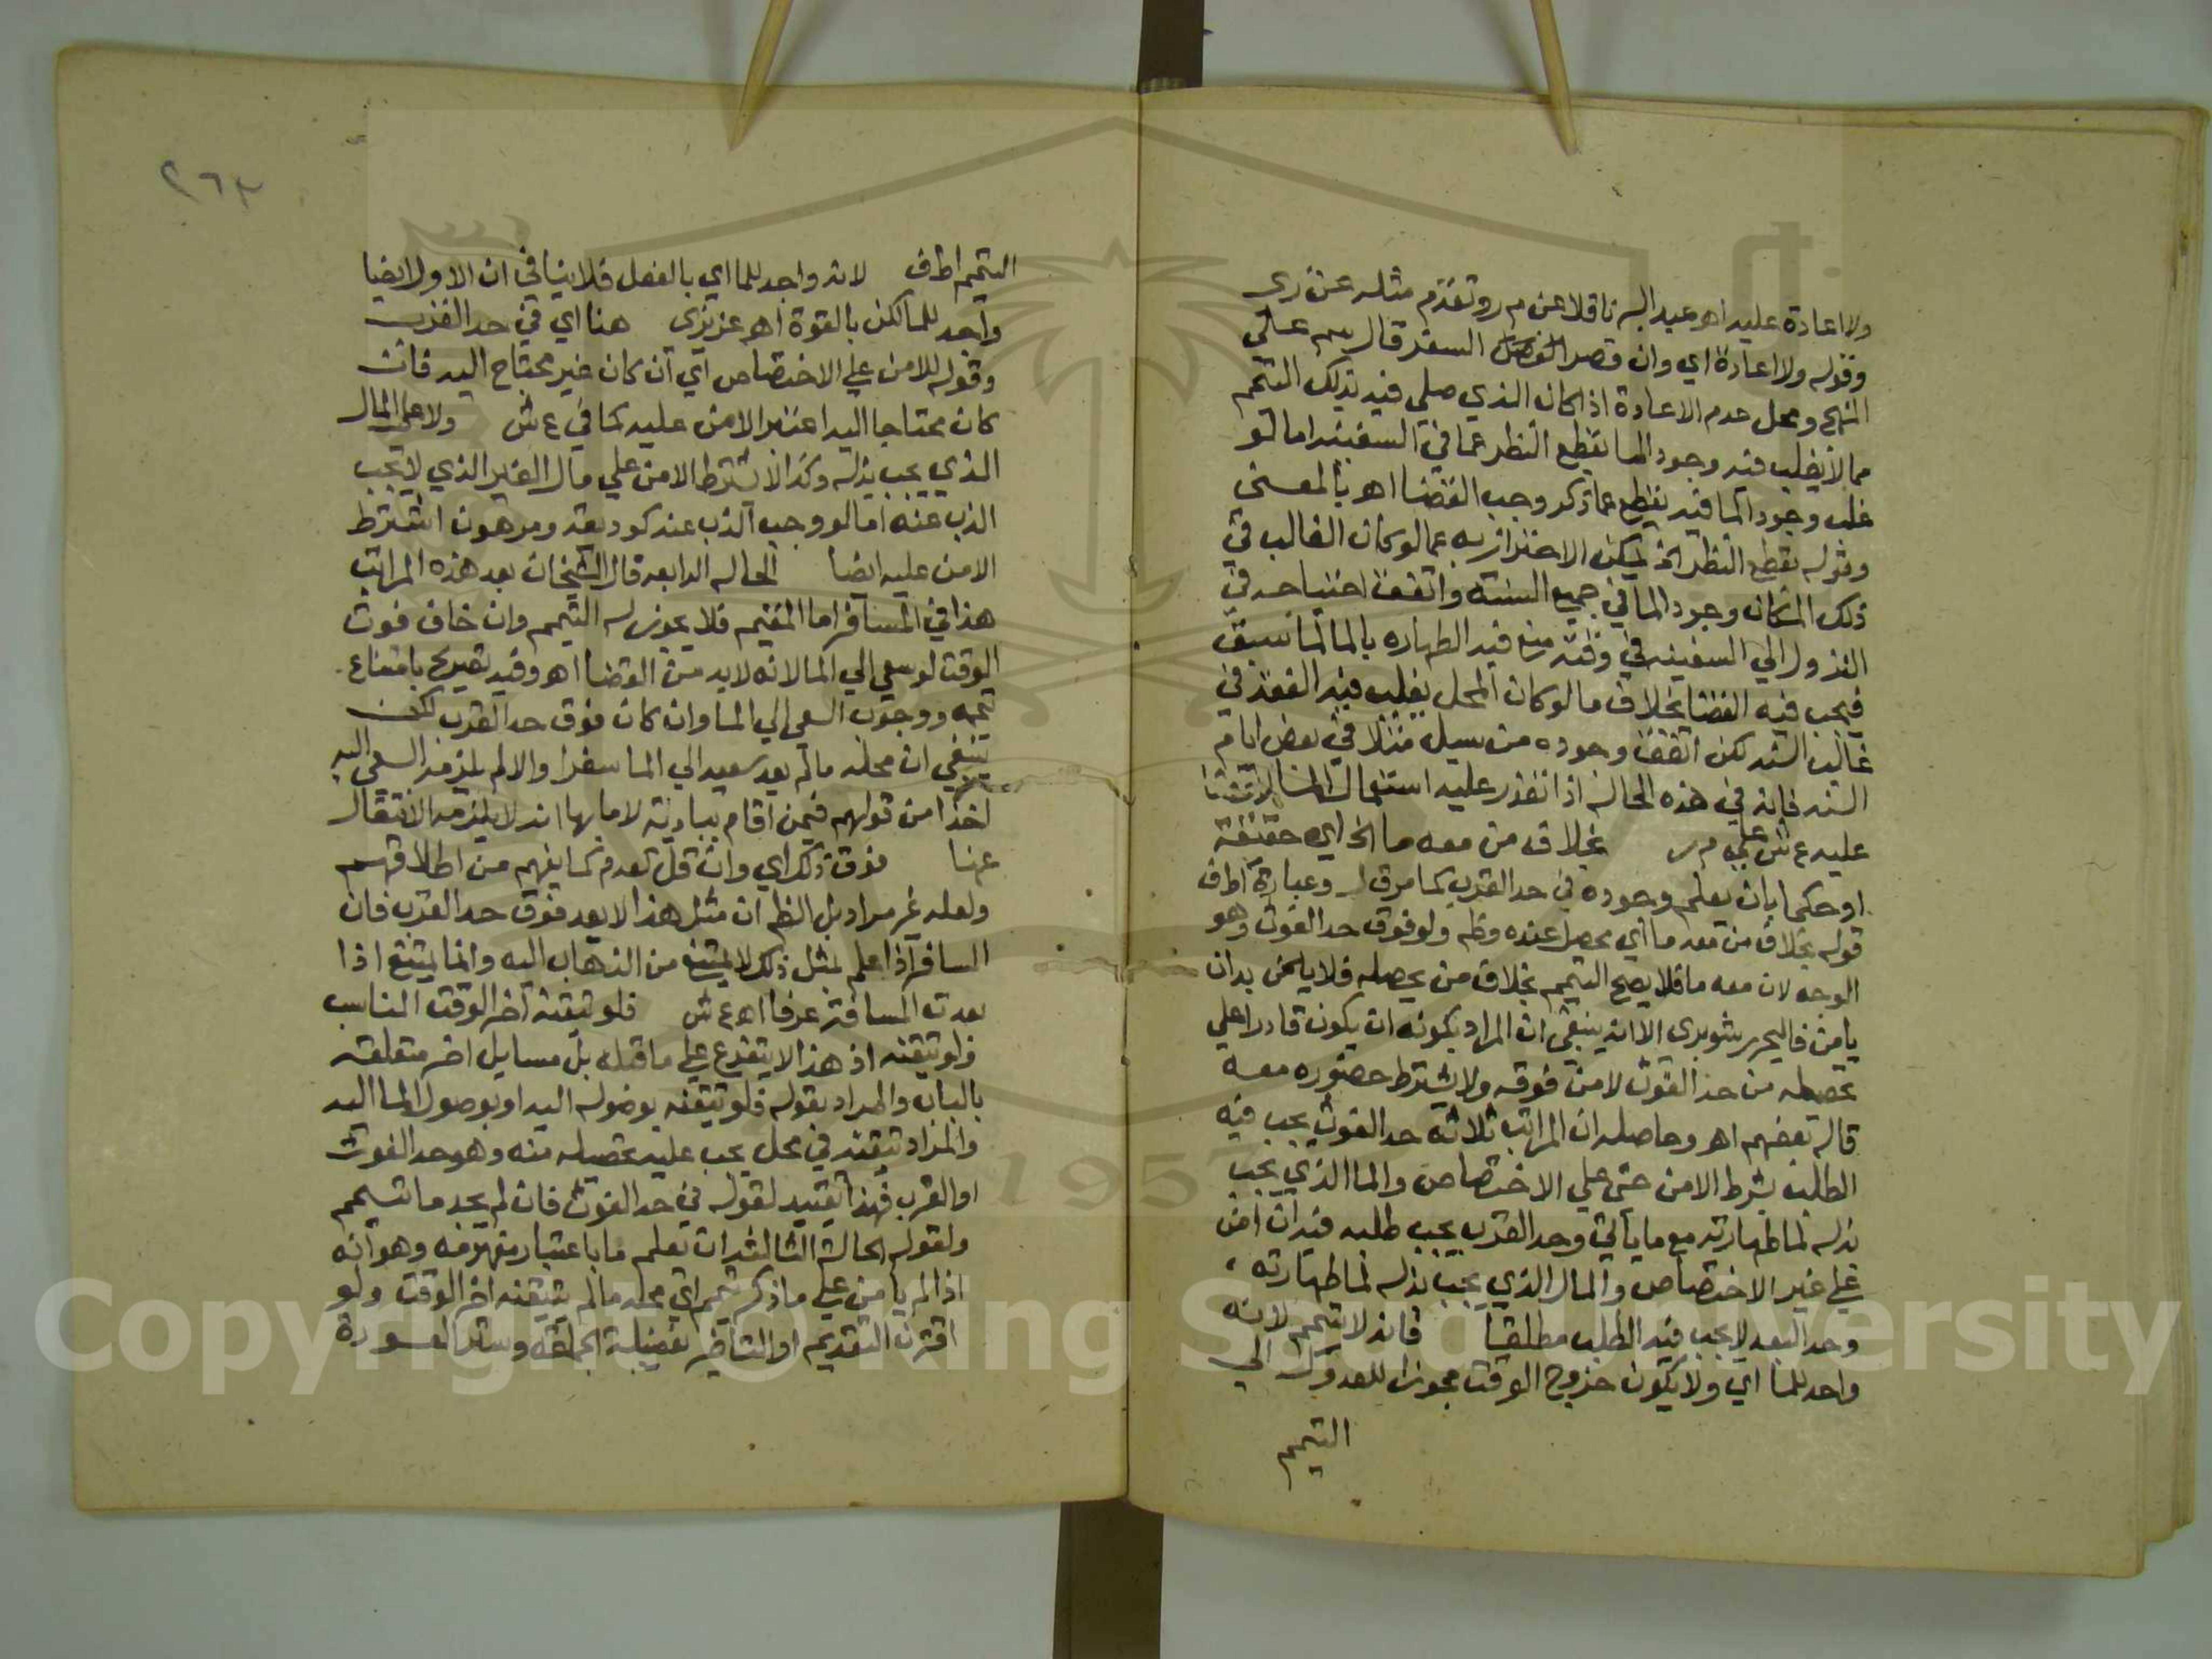 ولا اعادة عليه اهو عبد البر ناقلا عن م ر وتقدم مثله عن زي
وقوله ولا اعادة اي وان قصر السفر قال سم على
المنهج ومحل عدم الاعادة اذا كان الذي صلى فيه بذلك التيمم
مما لا يغلب فيه وجود الما بقطع النظر عما في السفينه اما لو
غلب وجود الما فيه بقطع عما ذكر وجب القضا اهو بالمعنى
وقوله بقطع النظر الخ يمكن الاحتراز به عما لو كان الغالب في
ذلك المكان وجود الما في جميع السنة واتفق احتياجه في
النزول الي السفينه في وقت منع فيه الطهاره بالما لما سبق
فيجب فيه القضا بخلاف ما لو كان المحل يغلب فيه الفقد في
غالب السنه لكن اتفق وجوده من سيل مثلا في بعض ايام
السنه فانه في هذه الحاله اذا تعذر عليه استعمال الما لا قضا
عليه ع ش على م ر بخلاف من معه ما الخ اي حقيقة
او حكما بان يعلم وجوده في حد القرب كما مر ق ل وعبارة اطف
قوله بخلاف من معه ما اي محصل عنده وظم ولو فوق حد الغوث وهو
الوجه لان معه ما فلا يصح التيمم بخلاف من يحصله فلا يلحق بدان
يامن فاليحرر شوبري الا انه ينبغي ان المراد بكونه ان يكون قادرا علي
تحصيله من حد الغوث لا من فوقه ولا يشترط حضوره معه
قاله بعضهم اهو وحاصله ان المراتب ثلاثه حد الغوث يجب فيه
الطلب بشرط الامن حتى علي الاختصاص والما الذي يجب
بذله لما طهارته مع ما ياتي وحد القرب يجب طلبه فيه ان امن
علي غير الاختصاص والمال الذي يجب بذله لما طهارته
وحد البعد لا يجب فيه الطلب مطلقا فانه لا يتيمم لانه
واجد للما اي ولا يكون خروج الوقت مجوزا للعدول الي
التيمم
٢٦٣
التيمم اطف لانه واجد للما اي بالفعل فلا ينافي ان الاول ايضا
واجد للما لكن بالقوة اهو عزيزي هنا اي في حد القرب
وقوله للامن علي الاختصاص اي ان كان غير محتاج اليه فان
كان محتاجا اليه اعتبر الامن عليه كما في ع ش ولا علي المال
الذي يجب بذله وكذا لا يشترط الامن علي مال الغير الذي لا يجب
الذب عنه اما لو وجب الذب عنه كوديعة ومرهون اشترط
الامن عليه ايضا الحاله الرابعه قال الشيخان بعد هذه المراتب
هذا في المسافر اما المقيم فلا يجوز له التيمم وان خاف فوت
الوقت لو سعي الي الما لانه لا بد من القضا اهو وفيه تصريح بامتناع
تيممه ووجوب السعي الي الما وان كان فوق حد القرب لكن
ينبغي ان محله ما لم يعد سعيه الي الما سفرا والا لم يلزمه السعي اليه
اخذا من قولهم فيمن اقام ببادية لا ما بها انه لا يلزمه الانتقال
عنها فوق ذلك اي وان قل كعدم كما يفهم من اطلاقهم
ولعله غير مراد بل الظم ان مثل هذا لا يعد فوق حد القرب فان
المسافر اذا علم بمثل ذلك لا يمتنع من الذهاب اليه وانما يمتنع اذا
بعدت المسافة عرفا اهو ع ش فلو تيقنه اخر الوقت المناسب
ولو تيقنه اذ هذا لا يتفرع علي ما قبله بل مسايل اخر متعلقه
بالباب والمراد بقوله فلو تيقنه بوضوله اليه او بوصول الما اليه
والمراد تيقنه في محل يجب عليه تحصيله منه وهو حد الغوث
او القرب فهذا تقييد لقوله في حد الغوث فان لم يجد ما تيمم
ولقوله الحالة الثالثه ان يعلم ما باعتبار مفهومه وهو انه
اذا لم يا من علي ما ذكر تيمم اي محله ما لم يتيقنه اخر الوقت ولو
اقترن التقديم او التاخير بفضيلة الجماعه وستر العورة
Copyright © King Saud University
1957